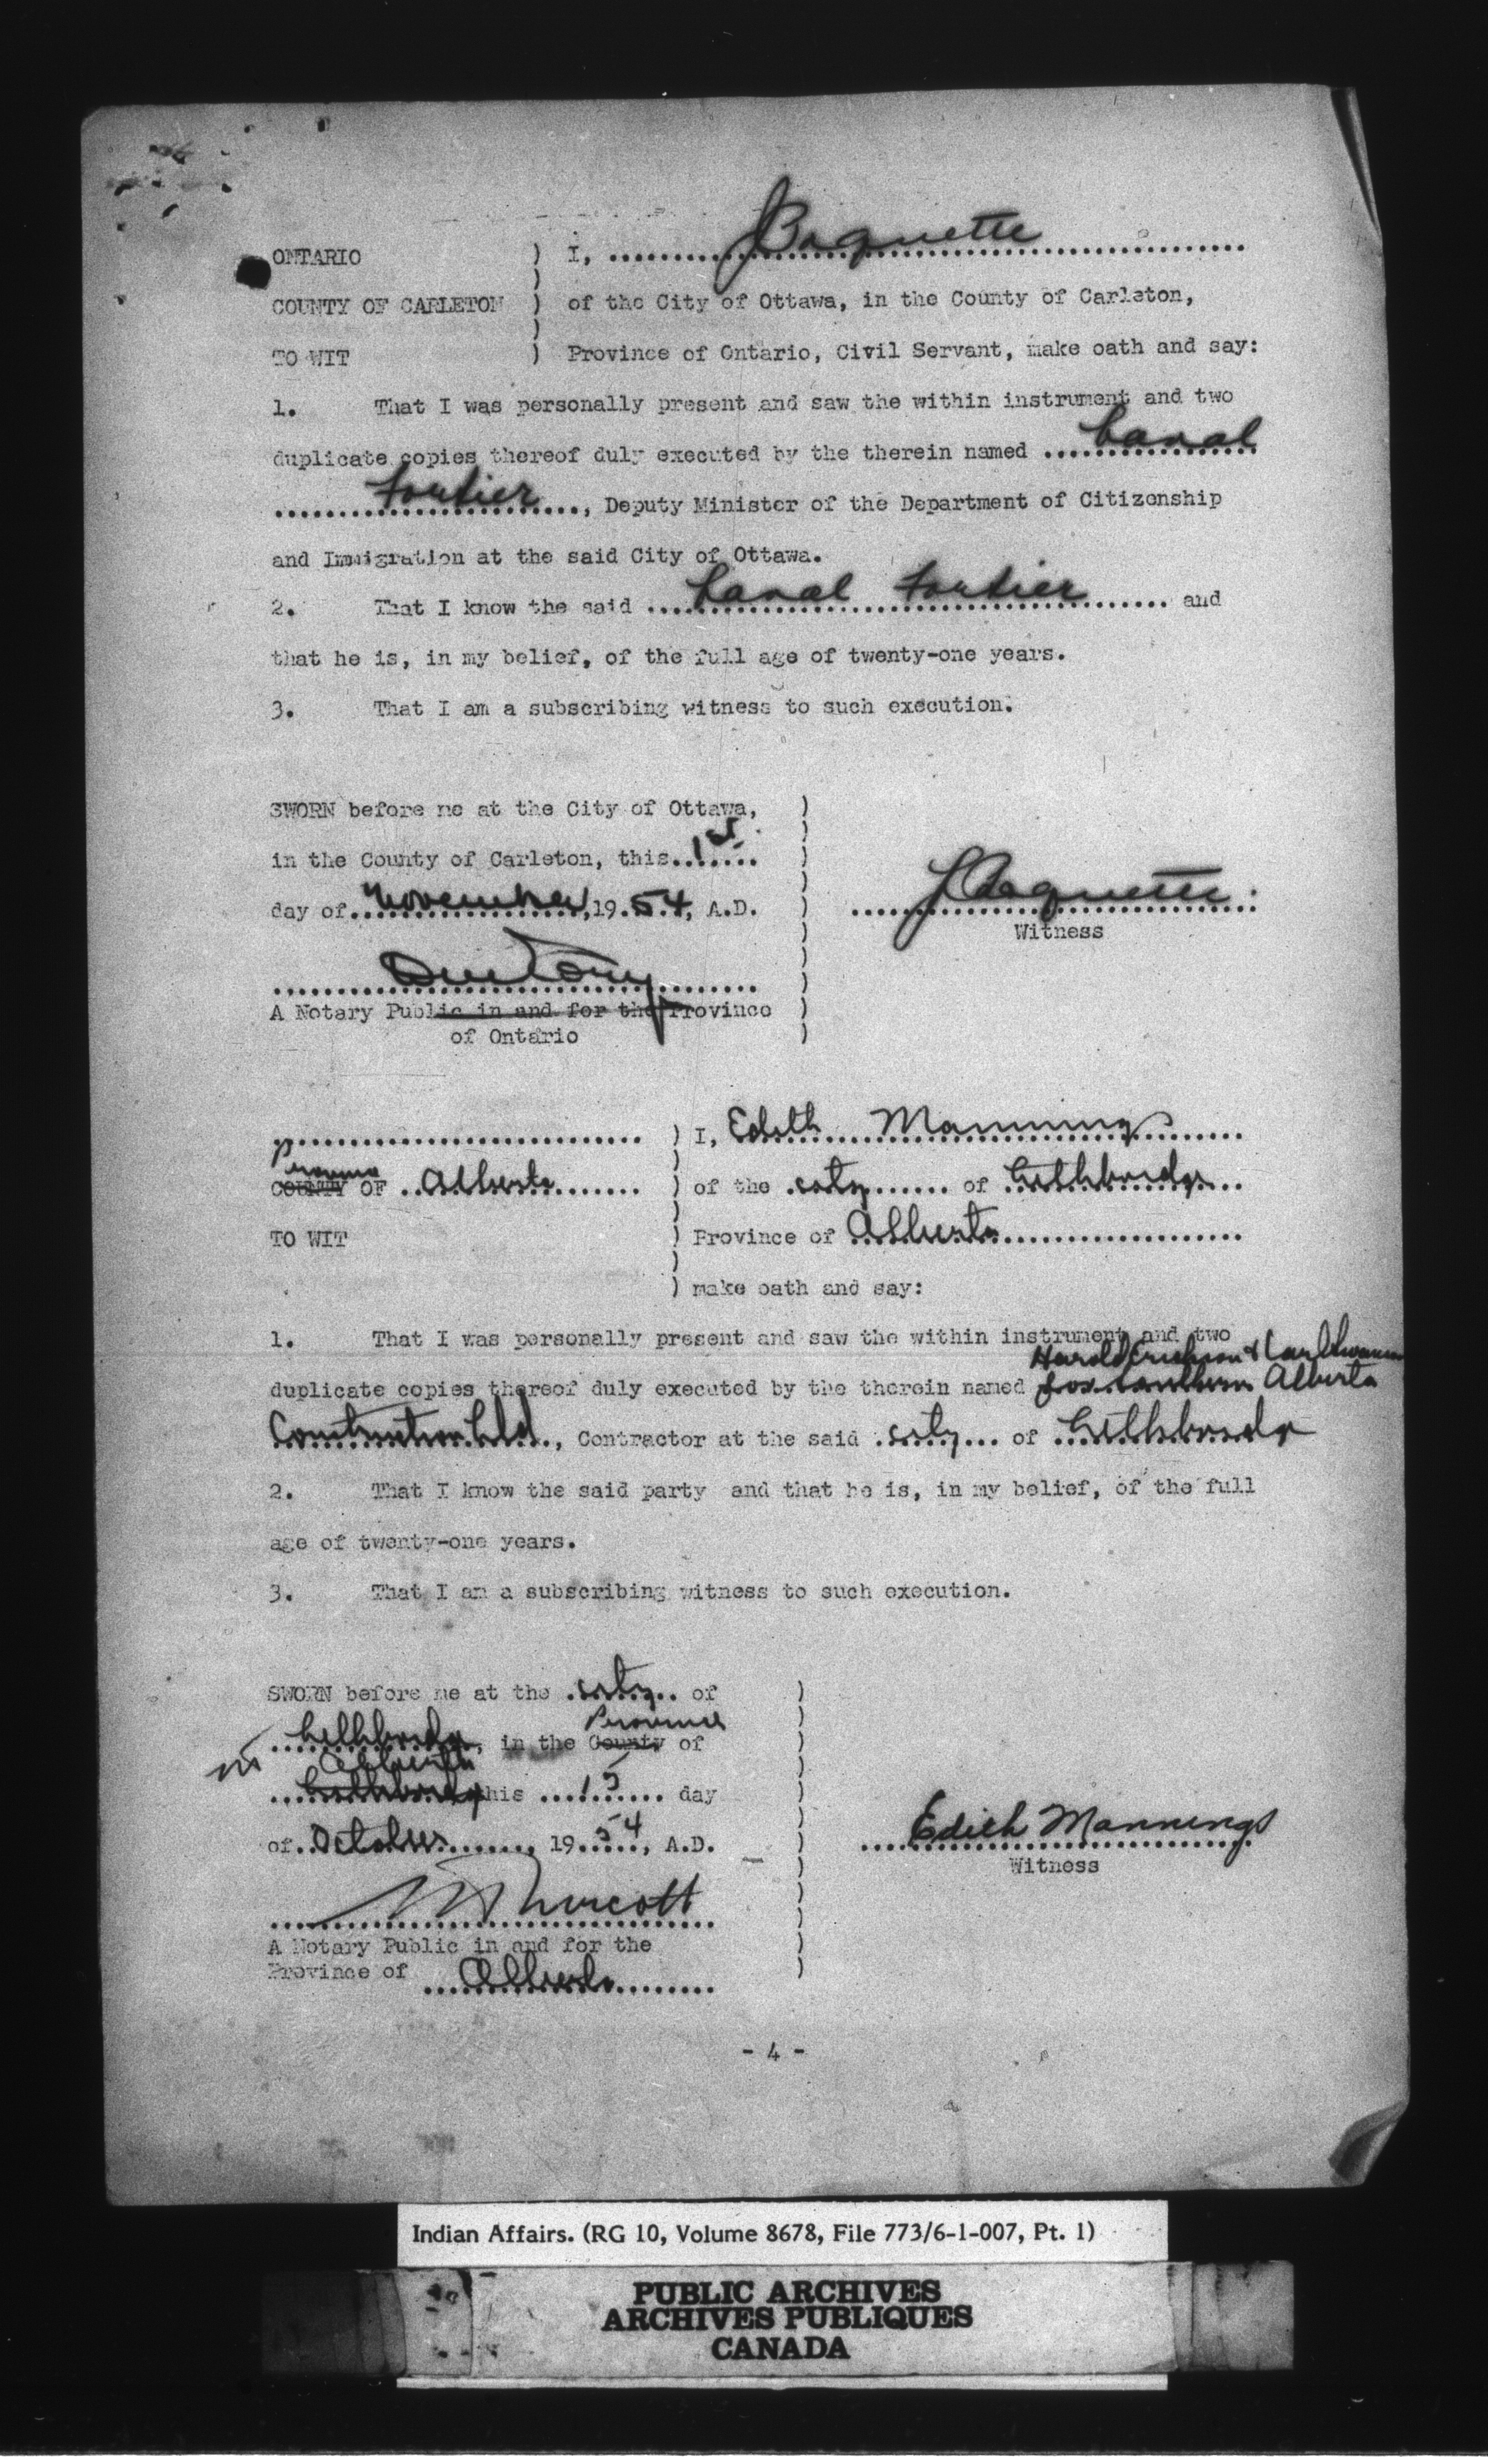 ONTARIO ) I, ........ Paquette ........
COUNTY OF CARLETON ) of the City of Ottawa, in the County of Carleton,
TO WIT ) Province of Ontario, Civil Servant, make oath and say:
1. That I was personally present and saw the within instrument and two
duplicate copies thereof duly executed by the therein named ... Laval
... Fortier ..., Deputy Minister of the Department of Citizenship
and Immigration at the said City of Ottawa.
2. That I know the said ... Laval Fortier ... and
that he is, in my belief, of the full age of twenty-one years.
3. That I am a subscribing witness to such execution.
SWORN before me at the City of Ottawa, )
in the County of Carleton, this 1st )
day of November, 1954, A.D. ) Paquette
Witness
A Notary Public in and for the Province )
of Ontario
) I, Edith Mannings
Province
COUNTY OF Alberta ) of the city of Lethbridge
TO WIT ) Province of Alberta
) make oath and say:
1. That I was personally present and saw the within instrument and two
Harold Erickson & Carl Swanson
duplicate copies thereof duly executed by the therein named for Southern Alberta
Construction Ltd., Contractor at the said city of Lethbridge
2. That I know the said party and that he is, in my belief, of the full
age of twenty-one years.
3. That I am a subscribing witness to such execution.
SWORN before me at the city of )
Province
Lethbridge, in the County of )
Alberta
Lethbridge this 15 day )
of October, 1954, A.D. ) Edith Mannings
Witness
A Notary Public in and for the
Province of Alberta
- 4 -
Indian Affairs. (RG 10, Volume 8678, File 773/6-1-007, Pt. 1)
PUBLIC ARCHIVES
ARCHIVES PUBLIQUES
CANADA